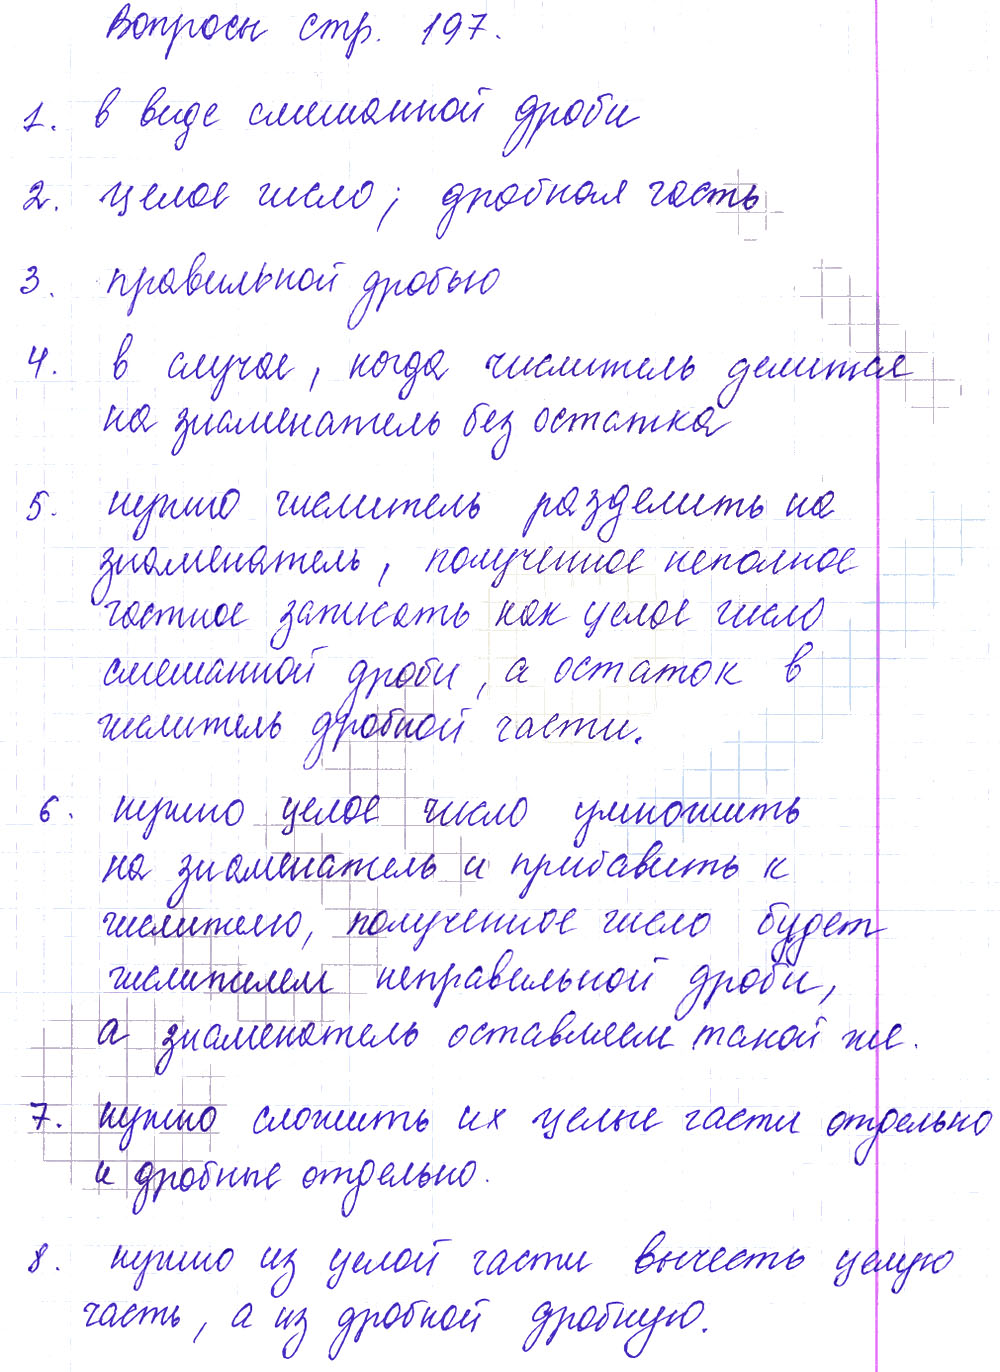 Вопросы стр. 197.
1. в виде смешанной дроби
2. целое число; дробная часть
3. правильной дробью
4. в случае, когда числитель делится
на знаменатель без остатка
5. нужно числитель разделить на
знаменатель, полученное неполное
частное записать как целое число
смешанной дроби, а остаток в
числитель дробной части.
6. нужно целое число умножить
на знаменатель и прибавить к
числителю, полученное число будет
числителем неправильной дроби,
а знаменатель оставляем такой же.
7. нужно сложить их целые части отдельно
и дробные отдельно.
8. нужно из целой части вычесть целую
часть, а из дробной дробную.